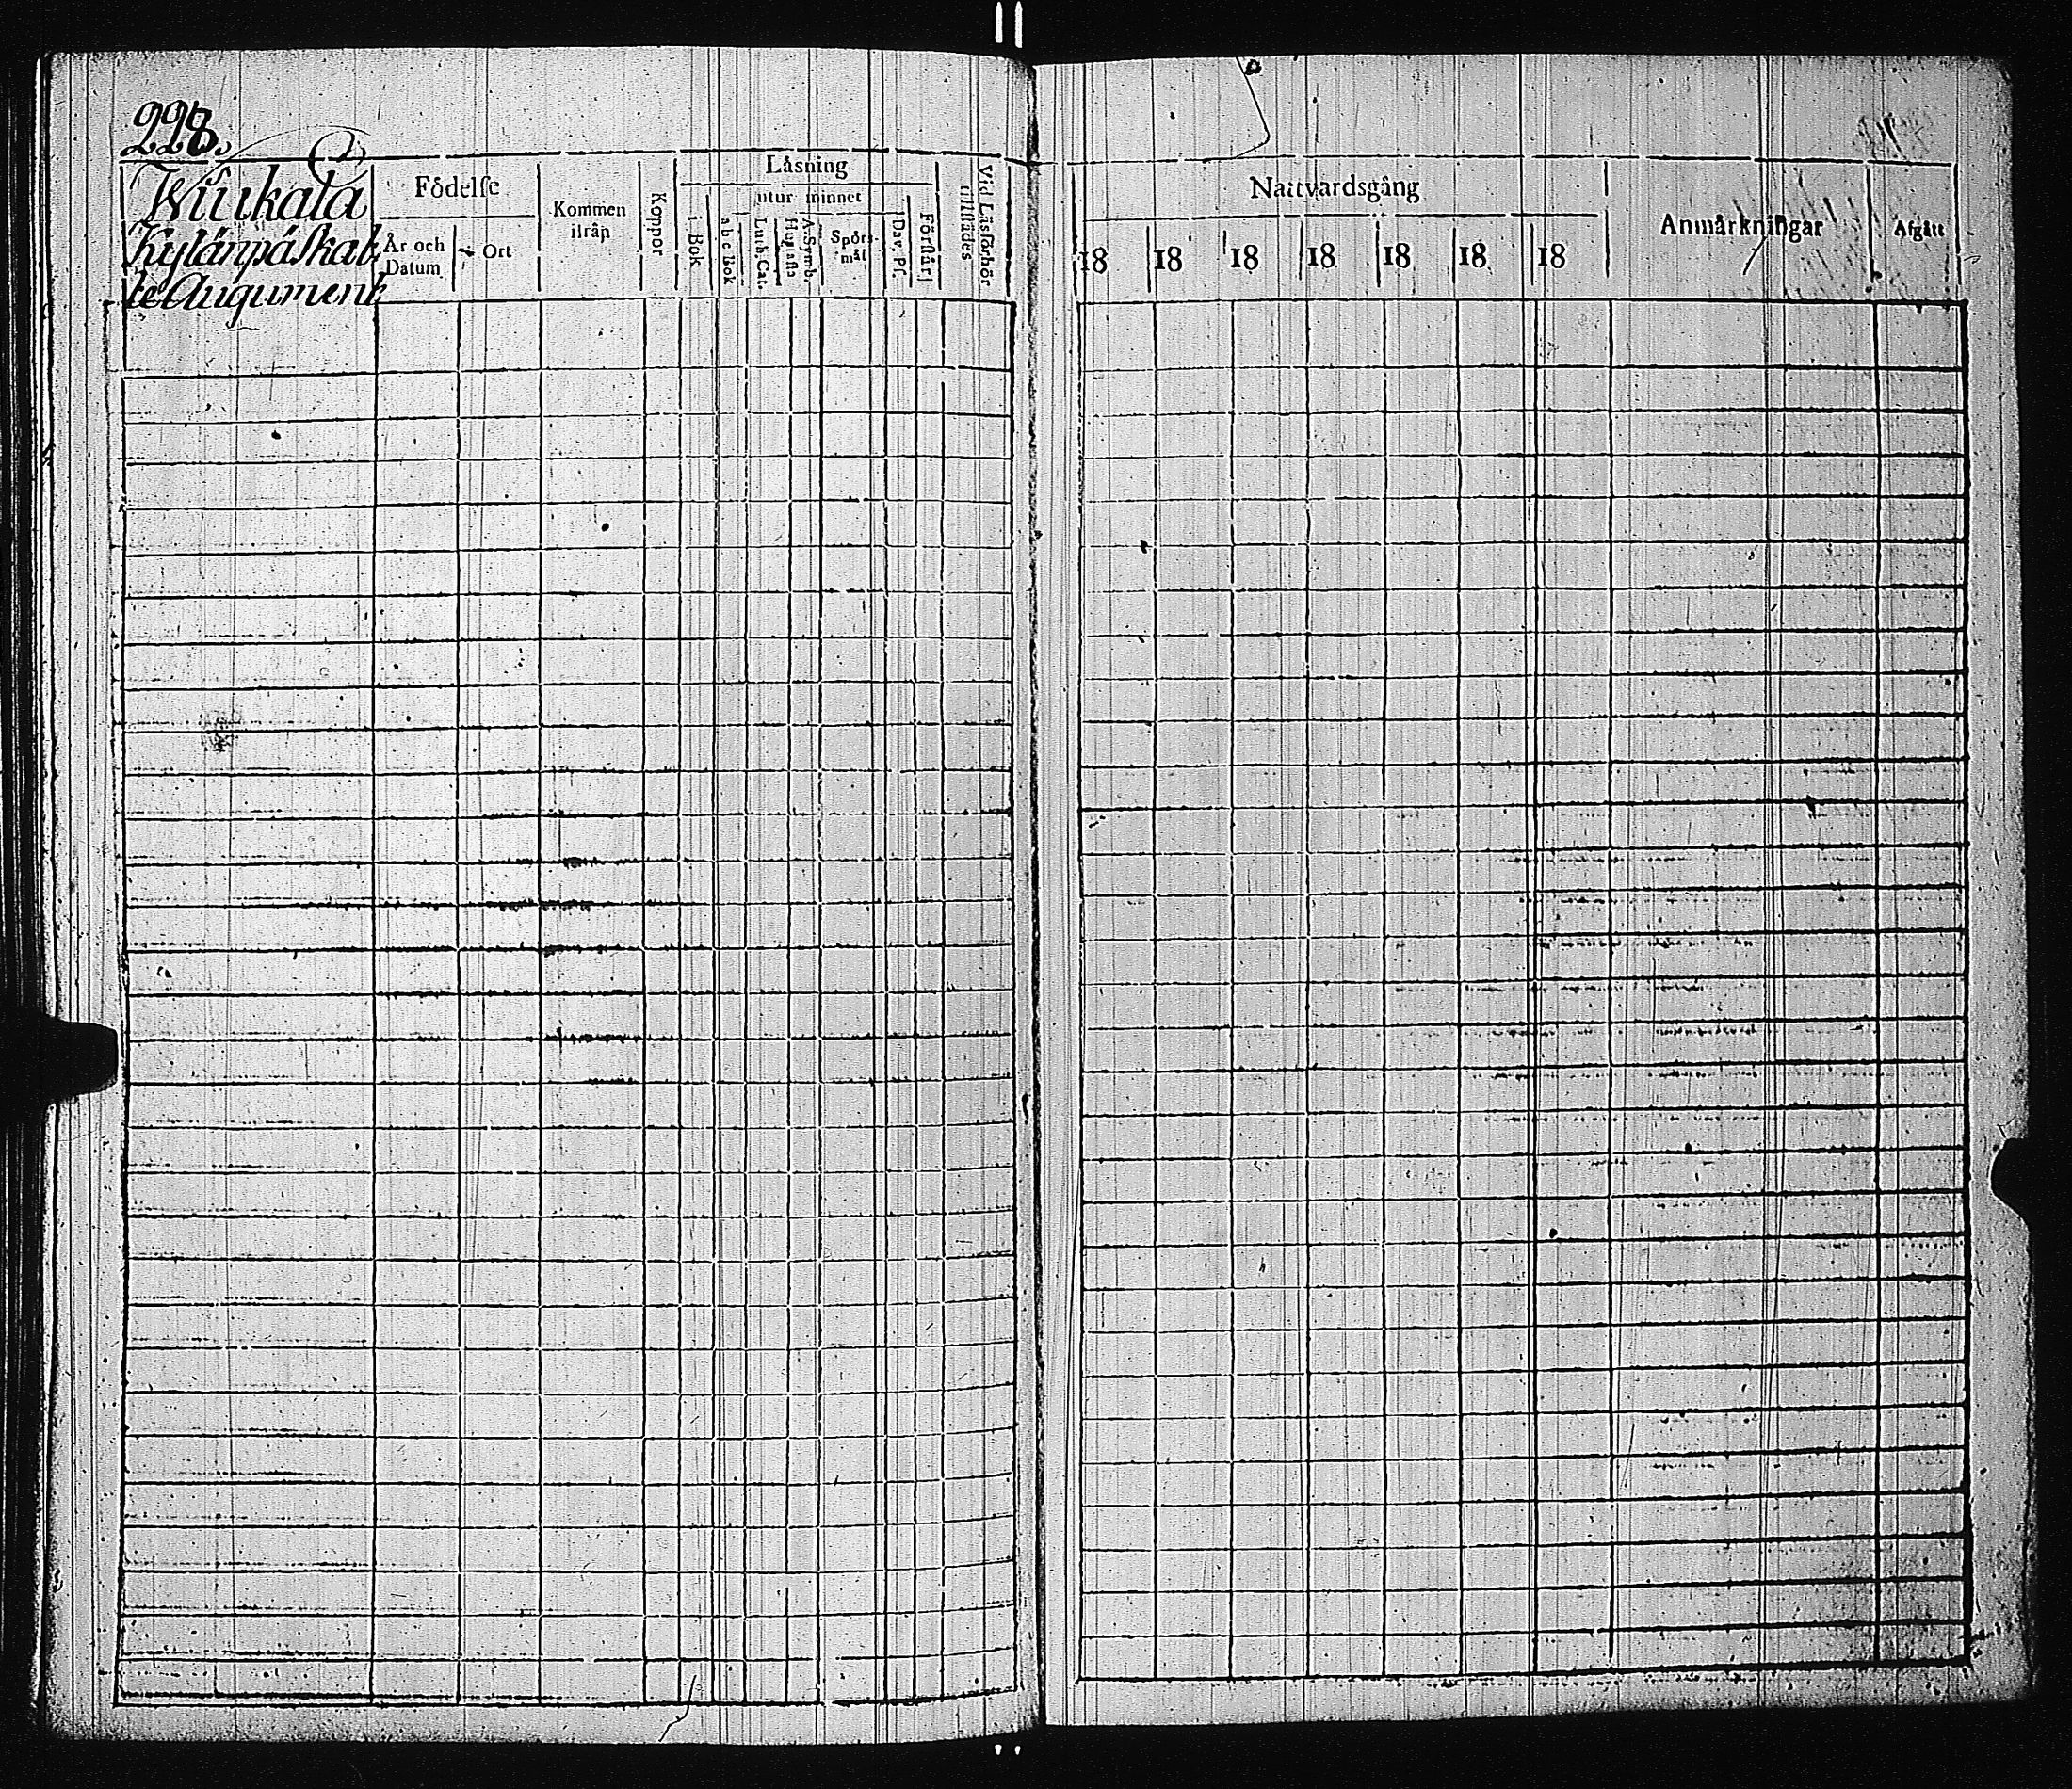 228.
Wiukala
Kylänpä Skat-
te Augument
Födelse
År och Datum
Ort
Kommen ifrån
Koppor
Läsning
utur minnet
i Bok
abc Bok
Luth. Cat.
Hustafla
A. Symb.
Spörs-mål
Dav. Ps.
Förstår
Vid Läsförhör tillstädes
Nattvardsgång
18 18 18 18 18 18 18
Anmärkningar
Afgått